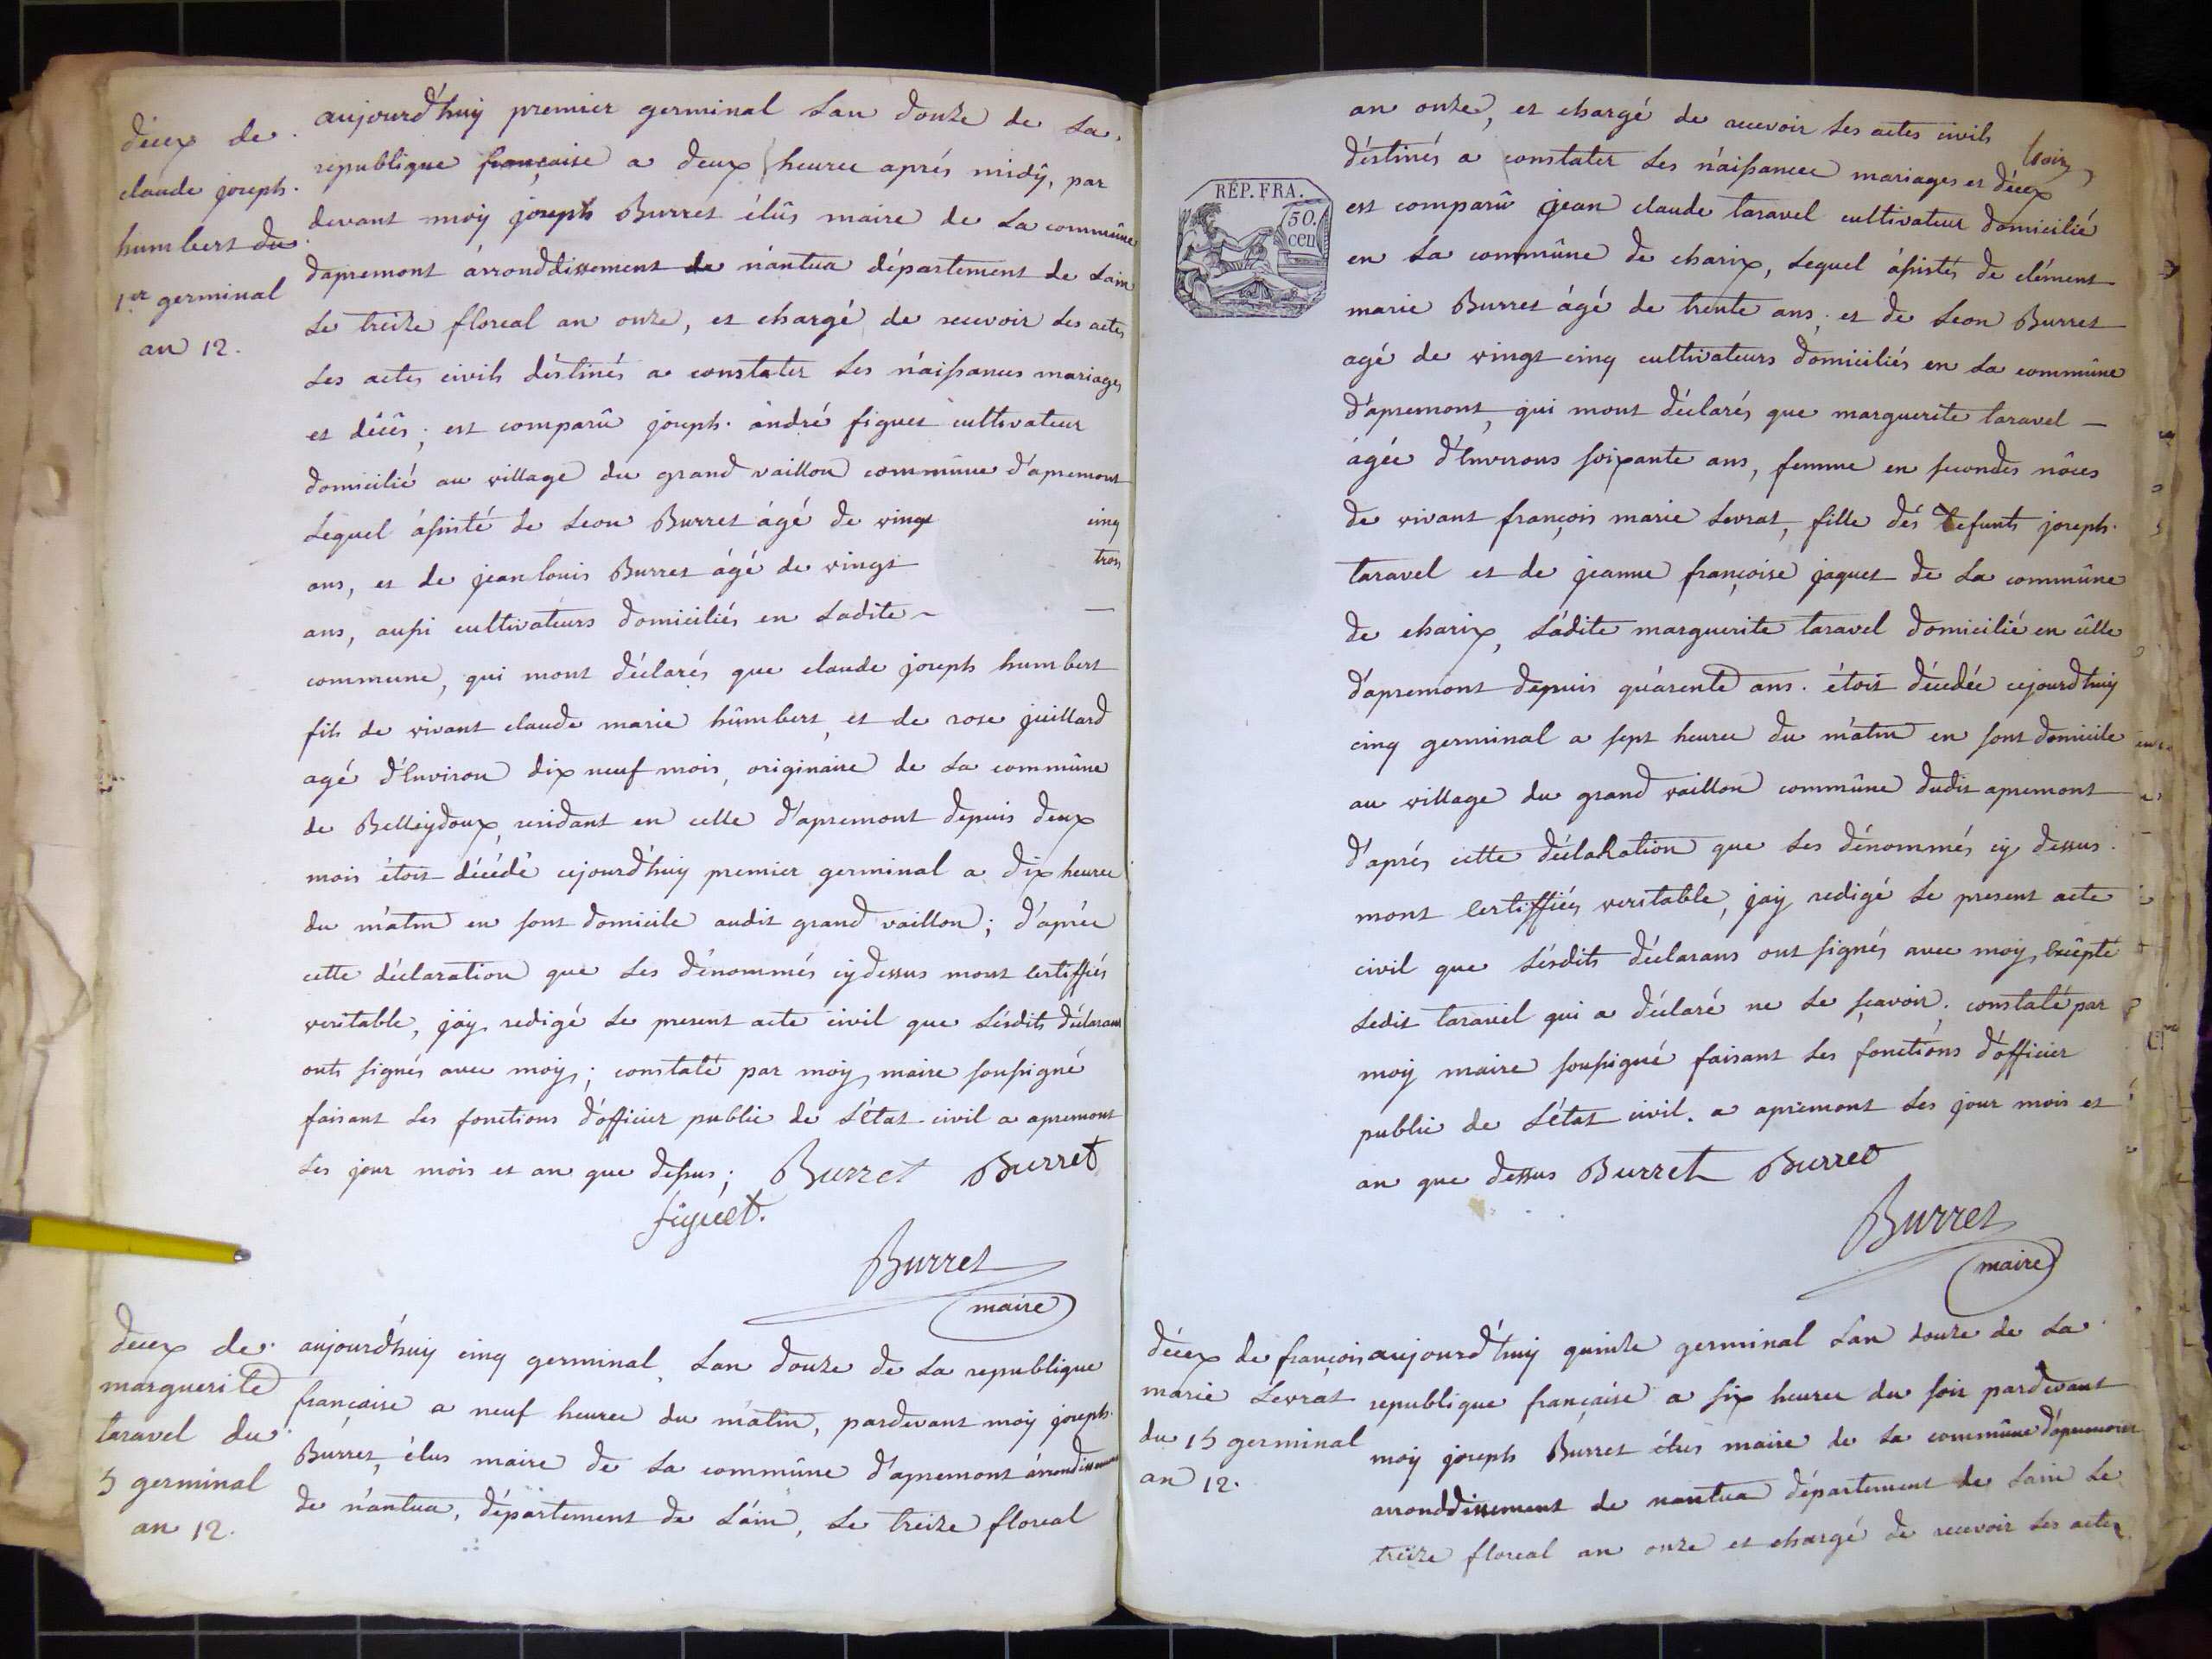 décex de
claude joseph
humbert du
1er germinal
an 12.
aujourd'huy premier germinal Lan douze de La
republique française a deux heures aprés midÿ, par
devant moÿ joseph Burret élûs maire de La commûne
dapremont árronddissement de nántua département de Lain
Le treize floreal an onze, et chargé de recevoir Les actes
Les actes civils déstinés a constater Les náissances mariages
et décês; est comparû joseph andré figuet cultivateur
domicilié au village du grand vaillon commûne d'apremont
Lequel ássisté de Leon Burret ágé de vingt cinq
ans, et de jean louis Burret ágé de vingt trois
ans, aussi cultivateurs domiciliés en Ladite —
commune, qui mont déclarés que claude joseph humbert
fils de vivant claude marie hûmbert, et de rose juillard
agé d'Environ dix neuf mois, originaire de La commûne
de Belleydoux, residant en celle d'apremont depuis deux
mois étoit décédé cejourd'huy premier germinal a dix heures
du mátin en sont domicile audit grand vaillon; d'aprés
cette déclaration que Les dénommés cÿ dessus mont certiffiés
veritable, jáÿ redigé Le present acte civil que Lésdits déclarans
onts signés avec moÿ; constaté par moÿ maire soussigné
faisant Les fonctions d'officier public de L'état civil a apremont
Les jour mois et an que dessus; Burret Burret
figuet.
Burret
maire
décex de
marguerite
taravel du
5 germinal
an 12.
aujourd'huy cinq germinal Lan douze de La republique
française a neuf heures du mátin, pardevant moÿ joseph
Burret, élus maire de La commûne d'apremont árrondissement
de nántua, département de Láin, Le treize floreal
an onze, et chargé de recevoir Les actes civils
déstinés a constater Les náissances mariages et décex
est comparû jean claude taravel cultivateur domicilié
en La commûne de charix, Lequel ássistés de clément
marie Burret ágé de trente ans, et de Leon Burret
agé de vingt cinq cultivateurs domiciliés en La commûne
d'apremont, qui mont déclarés que marguerite taravel —
ágée d'Environs soixante ans, femme en secondes nôces
de vivant françois marie Levrat, fille dés defunts joseph
taravel et de jeanne françoise jaquet de La commûne
de charix, Ládite marguerite taravel domicilié en cêlle
d'apremont depuis quárente ans. étoit décedée cejourdhuy
cinq germinal a sept heures du mátin en sont domicile
au village du grand vaillon commûne dudit apremont
d'aprés cette déclaRation que Les dénommés cÿ dessus
mont certiffiés veritable, jaÿ redigé Le présent acte
civil que Lésdits déclarans ont signés avec moÿ, Excêpté
Ledit taravel qui a déclaré ne Le sçavoir. constaté par
moÿ maire soussigné faisant Les fonctions d'officier
public de L'état civil. a apremont Les jour mois et
an que dessus Burret Burret
Burret
maire
RÉP. FRA.
50.
cen
décex de françois
marie Levrat
du 15 germinal
an 12.
aujourd'huy quinze germinal Lan douze de La
republique française a six heures du soir pardevant
moÿ joseph Burret élus maire de La commûne d'apremont
arronddissement de nantua département de Lain Le
treize floreal an onze et chargé de recevoir Les actes